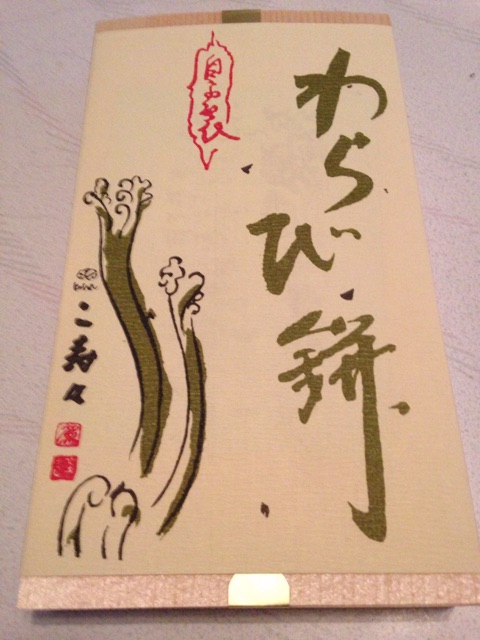 わらび餅
自家製
こ寿々